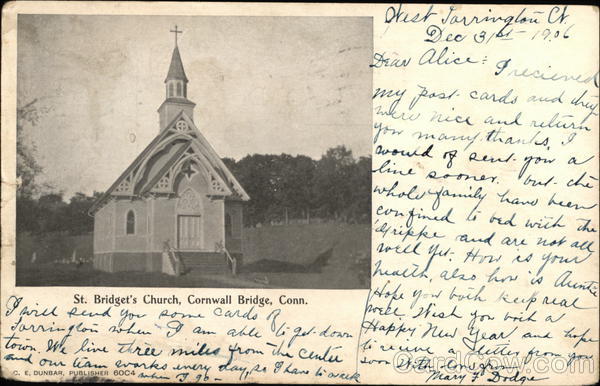 West Torrington Ct.
Dec 31st 1906
Dear Alice: I recieved
my post cards and they
were nice and return
you many thanks, I
would of sent you a
line sooner. but the
whole family have been
confined to bed with the
Grippe and are not all
well yet. How is your
health, also how is Auntie
Hope you both keep real
well. Wish you both a
Happy New Year and hope
to recive a letter from you
soon With love from
Mary F. Dodge
St. Bridget's Church, Cornwall Bridge, Conn.
I will send you some cards of
Torrington when I am able to get down
town. We live three miles from the center
and our team works every day, so I have to walk
when I go
C. E. DUNBAR, PUBLISHER 60C4
CardCow.com